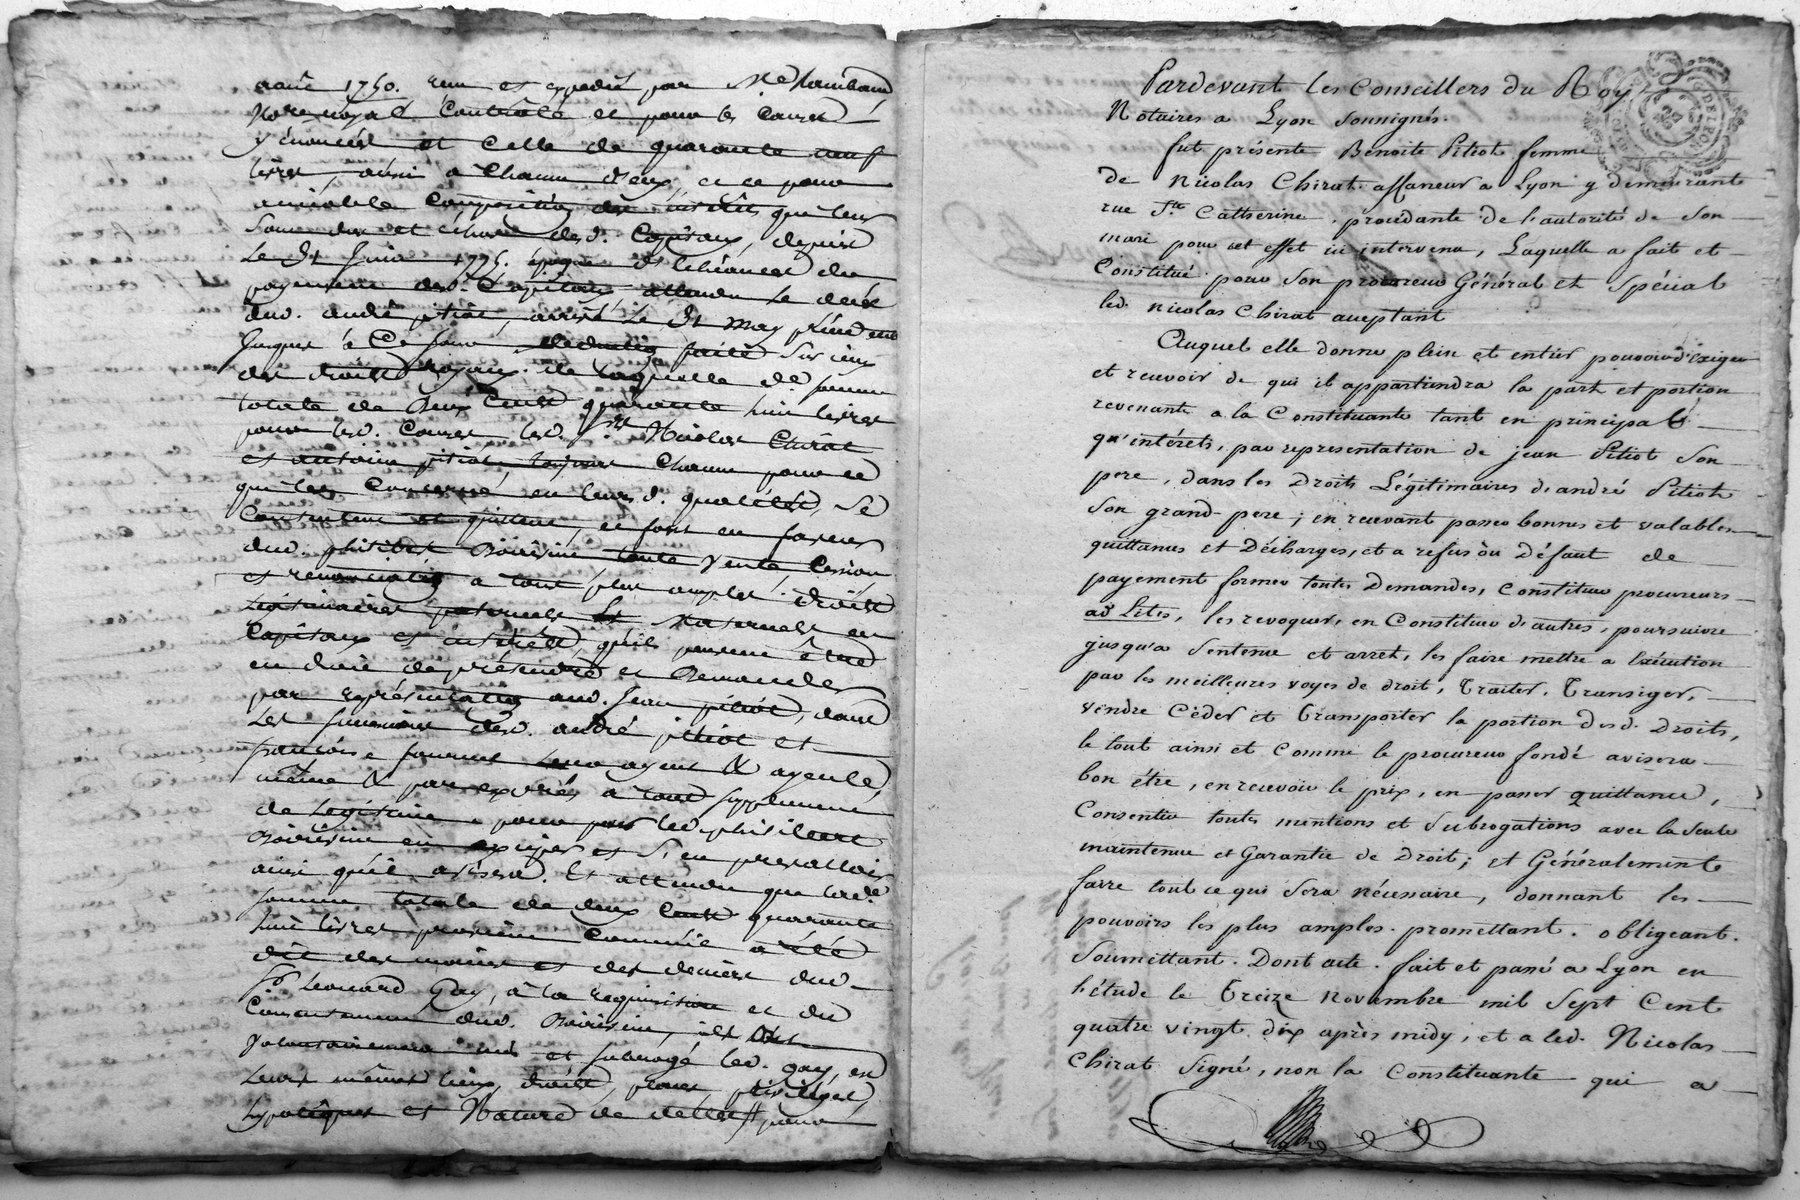 août 1750. reçu et expedié par Me
Nore royal Contrôlé et pour les Causes
y énoncées et Celle de quarante neuf
livres, aussi à Chacun d'eux, et ce pour
amiable Composition des intérêts que leur
Somme
Le 31 Juin 1775. époque d'échéance du
payement desd. Capitaux attendu le décès
dud. andré pitiot, arrivé le 31 may précédent
Jusques à Ce jour, déduction faite sur iceux
des droits royaux. de laquelle de somme
totale de Deux Cents quarante huit livres
pour lesd. Causes lesd. Srs Nicolas Chirat
et antoine pitiot, toujours Chacun pour ce
que les Concerne en leursd. qualités, se
Contentent et quittent, et font en faveur
dud. philibert toute vente, Cession
et renonciation à tous plus amples droits
Légitimaires paternels et Maternels en
Capitaux et intérêts, qu'ils peuvent être
en droit de prétendre et Demander
par représentation dud. Jean pitiot, dans
les successions desd. andré pitiot et
françoise leurs ayeul & ayeule,
même & par exprès à tout supplément
de Légitime, pour par led. philibert
en exciper et S'en prévaloir
ainsi qu'il avisera. Et attendu que lade
somme totale de deux Cents quarante
huit livres provient Comme il a été
dit des mains et des deniers dud.
Sr. Léonard Gay, à la requisition et du
Consentement dud. , ils ont
volontairement mis et subrogé led. gay, en
leurs mêmes lieux, droits, place, privilèges,
hypotèques et Nature de dettes pour
Pardevant les Conseillers du Roy
Notaires a Lyon Soussignés.
fut présente Benoite Pitiot femme
de Nicolas Chirat affaneur a Lyon y demeurante
rue Ste. Catherine, procédante de l'autorité de Son
mari pour cet effet ici intervenu, Laquelle a fait et
Constitué pour Son procureur Général et Spécial
led. nicolas Chirat acceptant
Auquel elle donne plein et entier pouvoir d'exiger
et recevoir de qui il appartiendra la part et portion
revenante a la Constituante tant en principal
qu'intérêts, par représentation de jean Pitiot Son
pere, dans les Droits Légitimaires d'andré Pitiot
Son grand-pere; en recevant passer bonnes et valables
quittances et Décharges, et a refus ou Défaut de
payement former toutes Demandes, Constituer procureurs
ad Lites, les révoquer, en Constituer d'autres, poursuivre
jusqu'a Sentence et arret, les faire mettre a Exécution
par les meilleures voyes de droit, Traiter, Transiger,
vendre Céder et transporter la portion desd. Droits,
le tout ainsi et Comme le procureur fondé avisera
bon être, en recevoir le prix, en passer quittance,
Consentir toutes mentions et Subrogations avec la Seule
maintenue et Garantie de Droit; et Généralement
faire tout ce qui Sera nécessaire, donnant les
pouvoirs les plus amples. promettant. obligeant.
Soumettant. Dont acte. fait et passé a Lyon en
l'étude le treize novembre mil Sept Cent
quatre vingt dix après midy, et a led. Nicolas
Chirat Signé, non la Constituante qui a